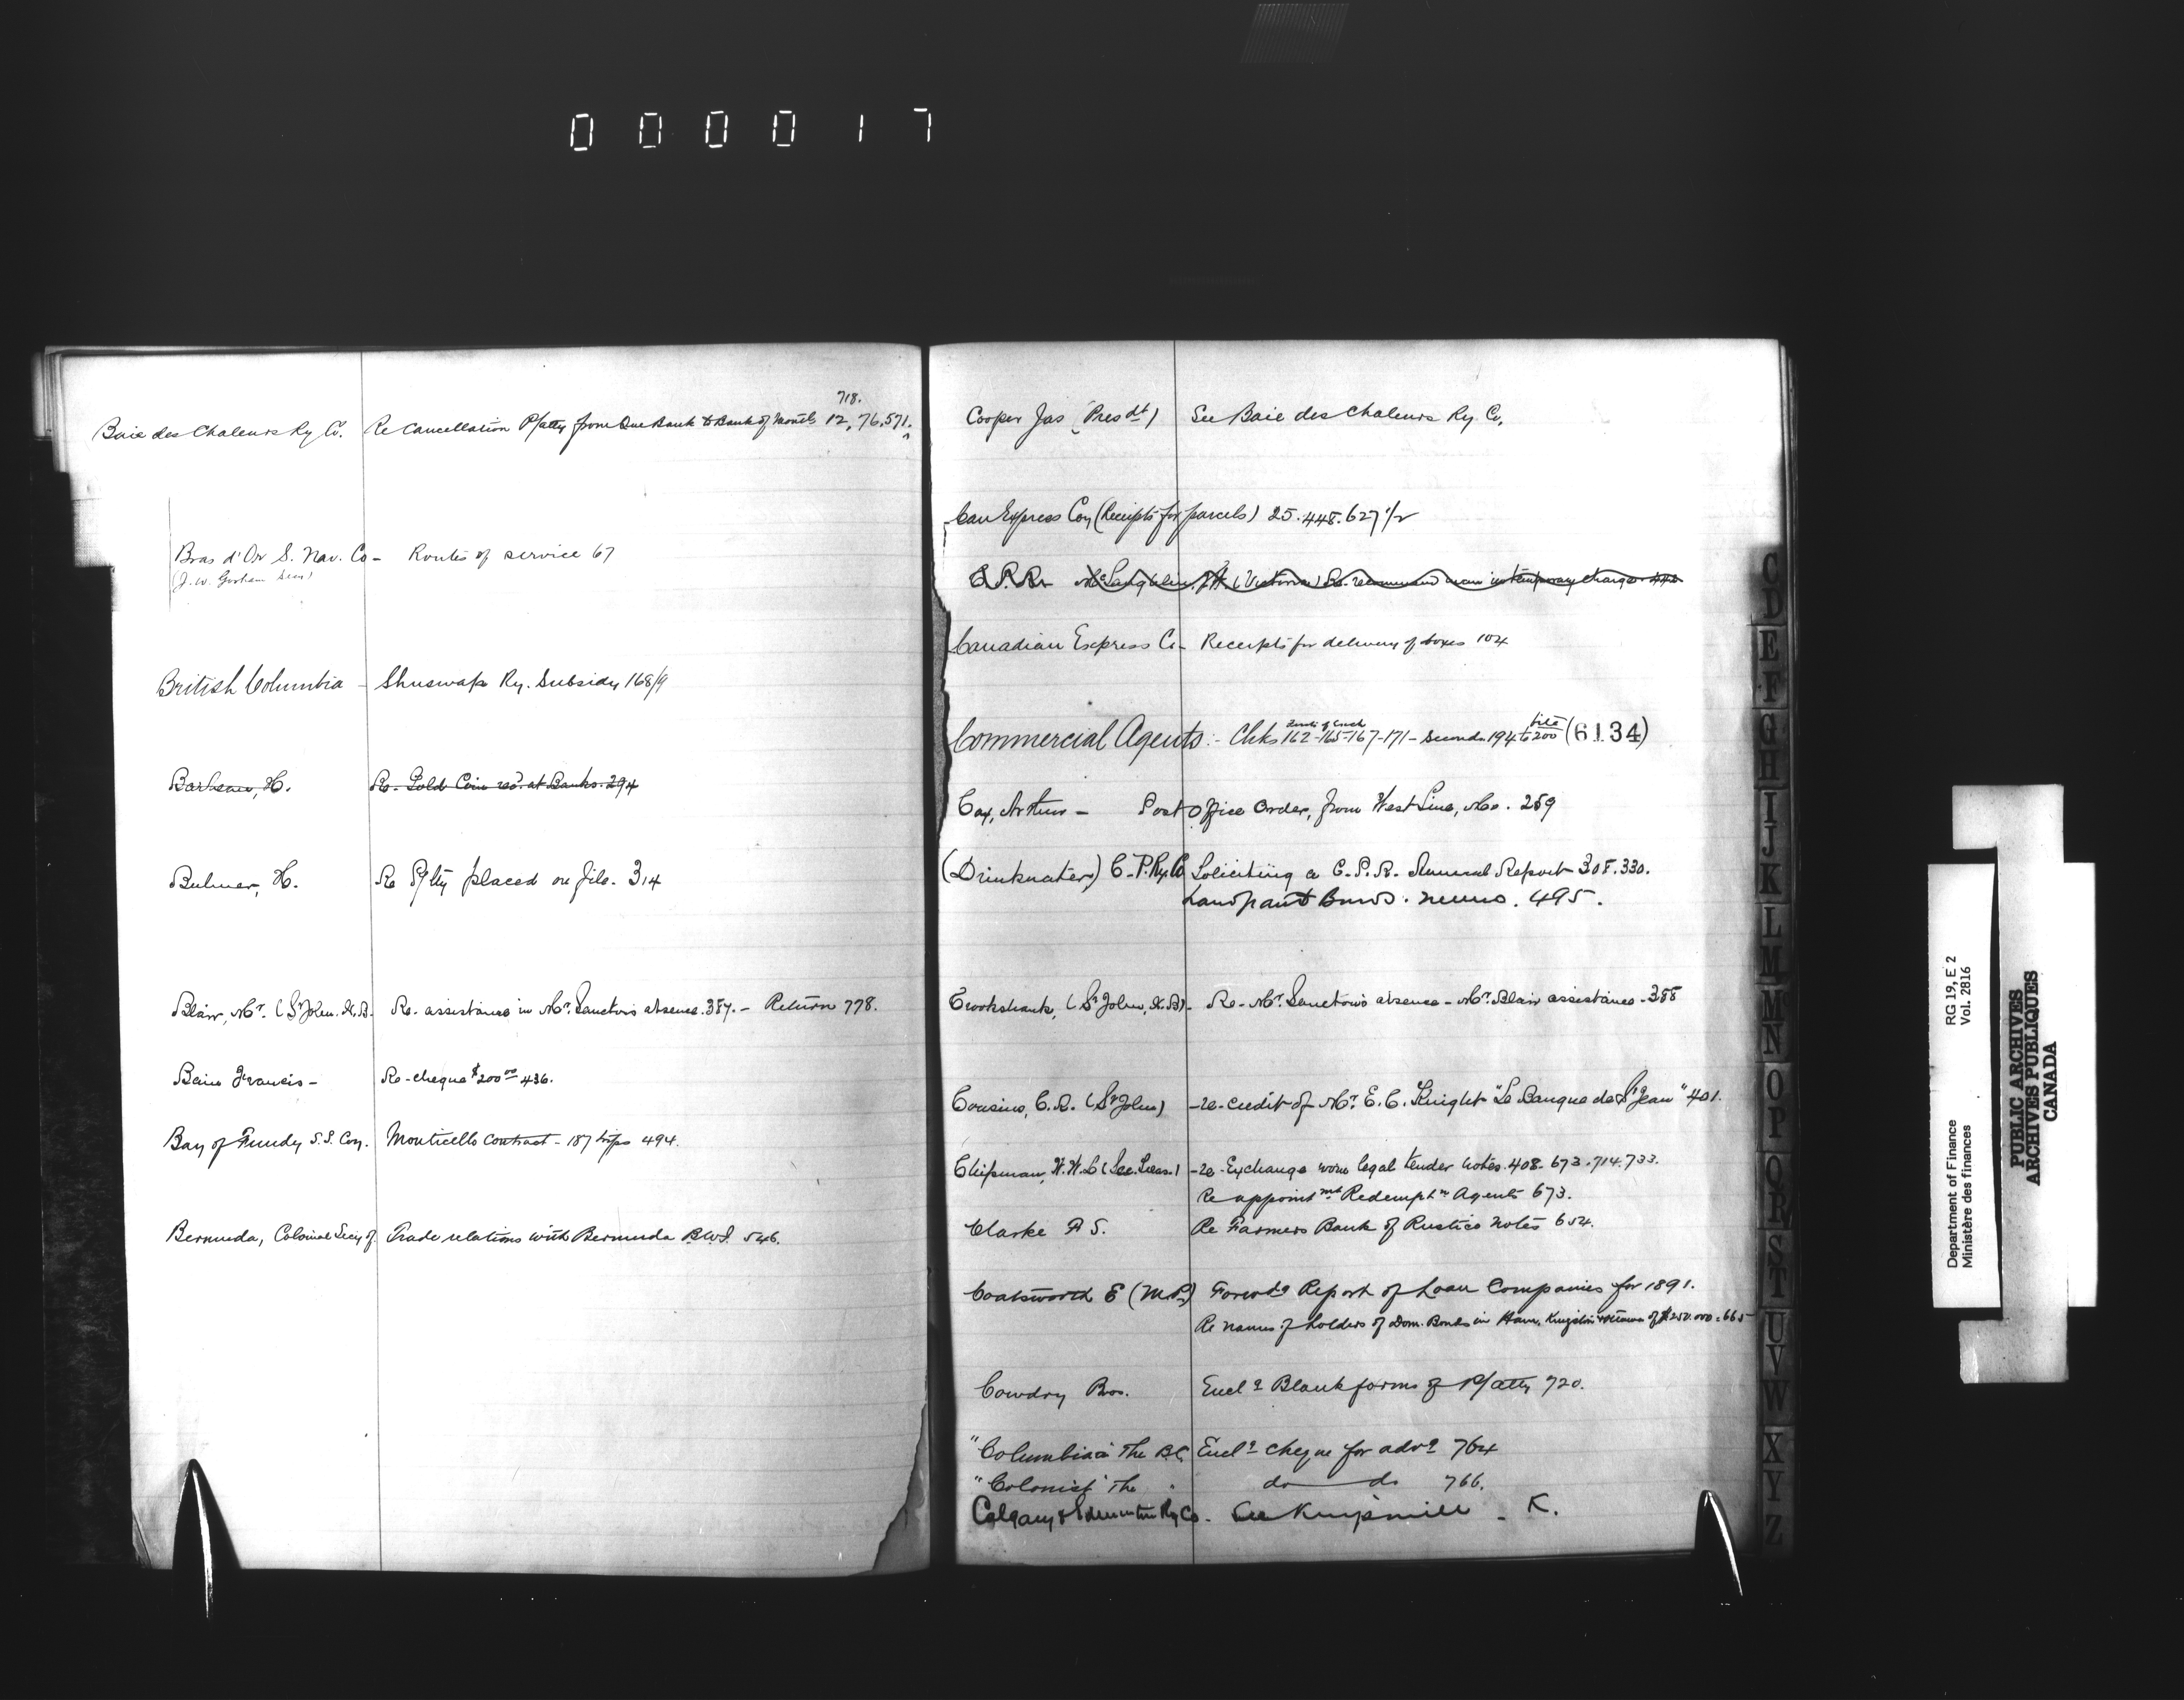 000017
718.
Baie des Chaleurs Ry Co. Re Cancellation P/atty from Que Bank to Bank of Montl 12, 76, 571.
Bras d'Or S. Nav. Co - Routes of service 67
(J. W. Gorham Secy)
British Columbia - Shuswap Ry. Subsidy 168/9
Barbeau, H. Re- Gold Coin recd. at Banks. 294
Bulmer, H. Re P/tty placed on file. 314
Blair, Mr. (St John. N.B. Re- assistance in Mr. absence. 387. - Return 778.
Bain Francis - Re- cheque $200 00 436.
Bay of Fundy S.S. Coy. Monticello Contract - 187 trips 494.
Bermuda, Colonial Secy of. Trade relations with Bermuda B.W.I. 546.
Cooper Jas (Presdt) See Baie des Chaleurs Ry. Co.
Can Express Coy (Receipts for parcels) 25. 448. 627 1/2
C.P.R. McLaughlin, (Victoria) Re- temporary charge. 442
Canadian Express Co - Receipts for delivery of boxes 104
Commercial Agents :- Chks 162-165-167-171 - Seconds 194 to 200 (6134)
Cox, Arthur - Post Office Order, from West Line, Mo. 259
(Drinkwater) C.P.Ry.Co Soliciting a C.P.R. Annual Report 308. 330.
Land grant Bonds. memo. 495.
Crookshank, (St John, N.B) - Re- Mr. absence - Mr. Blair assistance - 388
Cousins, C.R. (St John) - re- credit of Mr. E.C. Knight "La Banque de St Jean" 401.
Chipman, W.W.L (See. Leas.) - re- Exchange worn legal tender notes. 408. 673. 714. 733.
Re appointmt Redemptn Agents 673.
Clarke F S. Re Farmers Bank of Rustico Notes 654.
Coatsworth E (M.P.) Forwdg Report of Loan Companies for 1891.
Re names of holders of Dom. Bonds in Ham, Kingston & Ottawa of $250.000 : 665
Cowdry Bros. Enclg Blank forms of P/atty 720.
"Columbian" The B.C. Enclg cheque for advg 764
"Colonist" The " do do 766.
Calgary & Edmonton Ry Co - See Kingsmill - K.
C
D
E
F
G
H
I
J
K
L
M
M
N
O
P
Q
R
S
T
U
V
W
X
Y
Z
Department of Finance
Ministère des finances
RG 19, E 2
Vol. 2816
PUBLIC ARCHIVES
ARCHIVES PUBLIQUES
CANADA